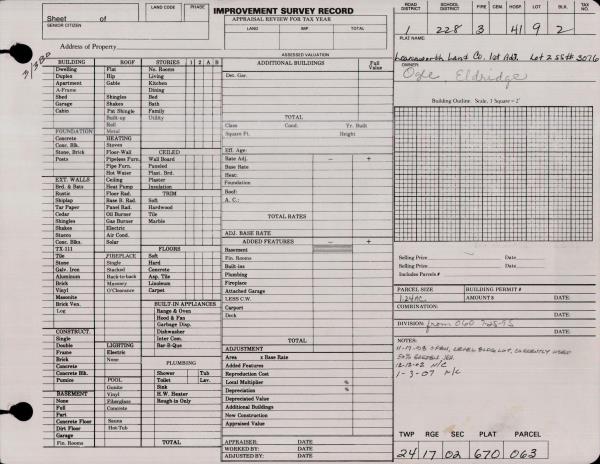 Sheet of
SENIOR CITIZEN
LAND CODE
PHASE
IMPROVEMENT SURVEY RECORD
APPRAISAL REVIEW FOR TAX YEAR
LAND IMP. TOTAL
ASSESSED VALUATION
ROAD DISTRICT SCHOOL DISTRICT FIRE CEM. HOSP. LOT BLK. TAX NO.
1 228 3 41 9 2
PLAT NAME
Leavenworth Land Co. 1st Add. Lot 2 SS# 3076
OWNER
Ogle, Eldridge
Address of Property
3/380
BUILDING ROOF STORIES 1 2 A B
Dwelling Flat No. Rooms
Duplex Hip Living
Apartment Gable Kitchen
A-Frame Dining
Shed Shingles Bed
Garage Shakes Bath
Cabin Pat Shingle Family
Built-up Utility
Roll
FOUNDATION Metal
Concrete HEATING
Conc. Blk. Stoves CEILED
Stone, Brick Floor-Wall Wall Board
Posts Pipeless Furn. Paneled
Pipe Furn. Plast. Brd.
Hot Water Plaster
EXT. WALLS Ceiling Insulation
Brd. & Bats Heat Pump
Rustic Floor Rad. TRIM
Shiplap Base B. Rad. Soft
Tar Paper Panel Rad. Hardwood
Cedar Oil Burner Tile
Shingles Gas Burner Marble
Shakes Electric
Stucco Air Cond.
Conc. Blks. Solar
TX-111 FLOORS
Tile FIREPLACE Soft
Stone Single Hard
Galv. Iron Stacked Concrete
Aluminum Back-to-back Asp. Tile
Brick Masonry Linoleum
Vinyl O'Clearance Carpet
Masonite
Brick Ven.
Log
BUILT-IN APPLIANCES
Range & Oven
Hood & Fan
Garbage Disp.
CONSTRUCT. Dishwasher
Single Inter Com.
Double LIGHTING Bar-B-Que
Frame Electric
Brick None
Concrete PLUMBING
Concrete Blk. Shower Tub
Pumice POOL Toilet Lav.
Gunite Sink
BASEMENT Vinyl H.W. Heater
None Fiberglass Rough-in Only
Full Concrete
Part
Concrete Floor Sauna
Dirt Floor Hot-Tub
Garage
Fin. Rooms TOTAL
ADDITIONAL BUILDINGS Full Value
Det. Gar.
TOTAL
Class Cond. Yr. Built
Square Ft. Height
Eff. Age:
Rate Adj. − +
Base Rate
Heat:
Foundation
Roof:
A. C.:
TOTAL RATES
ADJ. BASE RATE
ADDED FEATURES − +
Basement
Fin. Rooms
Built-ins
Plumbing
Fireplace
Attached Garage
LESS C.W.
Carport
Deck
TOTAL
ADJUSTMENT
Area x Base Rate
Added Features
Reproduction Cost
Local Multiplier %
Depreciation %
Depreciated Value
Additional Buildings
New Construction
Appraised Value
APPRAISER: DATE
WORKED BY: DATE
ADJUSTED BY: DATE
Building Outline. Scale, 1 Square = 2'
Selling Price Date
Selling Price Date
Includes Parcels #
PARCEL SIZE BUILDING PERMIT #
1.24 Ac. AMOUNT $ DATE:
COMBINATION:
DATE:
DIVISION: from 060 7-25-95
DATE:
NOTES:
11-17-03 OPEN, LEVEL BLDG LOT, CURRENTLY USED
12-12-02 N/C
1-3-07 N/C
TWP RGE SEC PLAT PARCEL
24 17 02 670 063